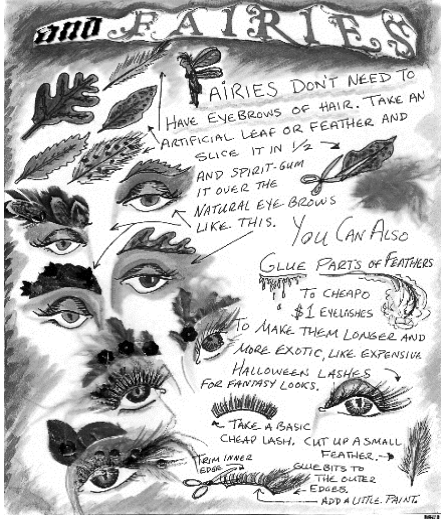 and FAIRIES
FAIRIES DON'T NEED TO
HAVE EYEBROWS OF HAIR. TAKE AN
ARTIFICIAL LEAF OR FEATHER AND
SLICE IT IN 1/2
AND SPIRIT-GUM
IT OVER THE
NATURAL EYE-BROWS
LIKE THIS.
YOU CAN ALSO
GLUE PARTS OF FEATHERS
TO CHEAPO
$1 EYELASHES
TO MAKE THEM LONGER AND
MORE EXOTIC, LIKE EXPENSIVE
HALLOWEEN LASHES
FOR FANTASY LOOKS.
TAKE A BASIC
CHEAP LASH. CUT UP A SMALL
FEATHER.
TRIM INNER
EDGE.
GLUE BITS TO
THE OUTER
EDGES.
ADD A LITTLE PAINT.